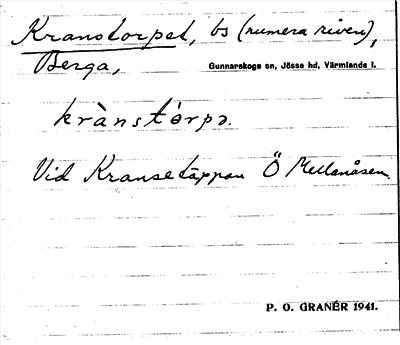 Kranstorpet, bs (numera riven),
Berga, Gunnarskogs sn, Jösse hd, Värmlands l.
krànstɵ́rpə.
Vid Kransetäppan Ö Mellanåsen.
P. O. GRANÉR 1941.